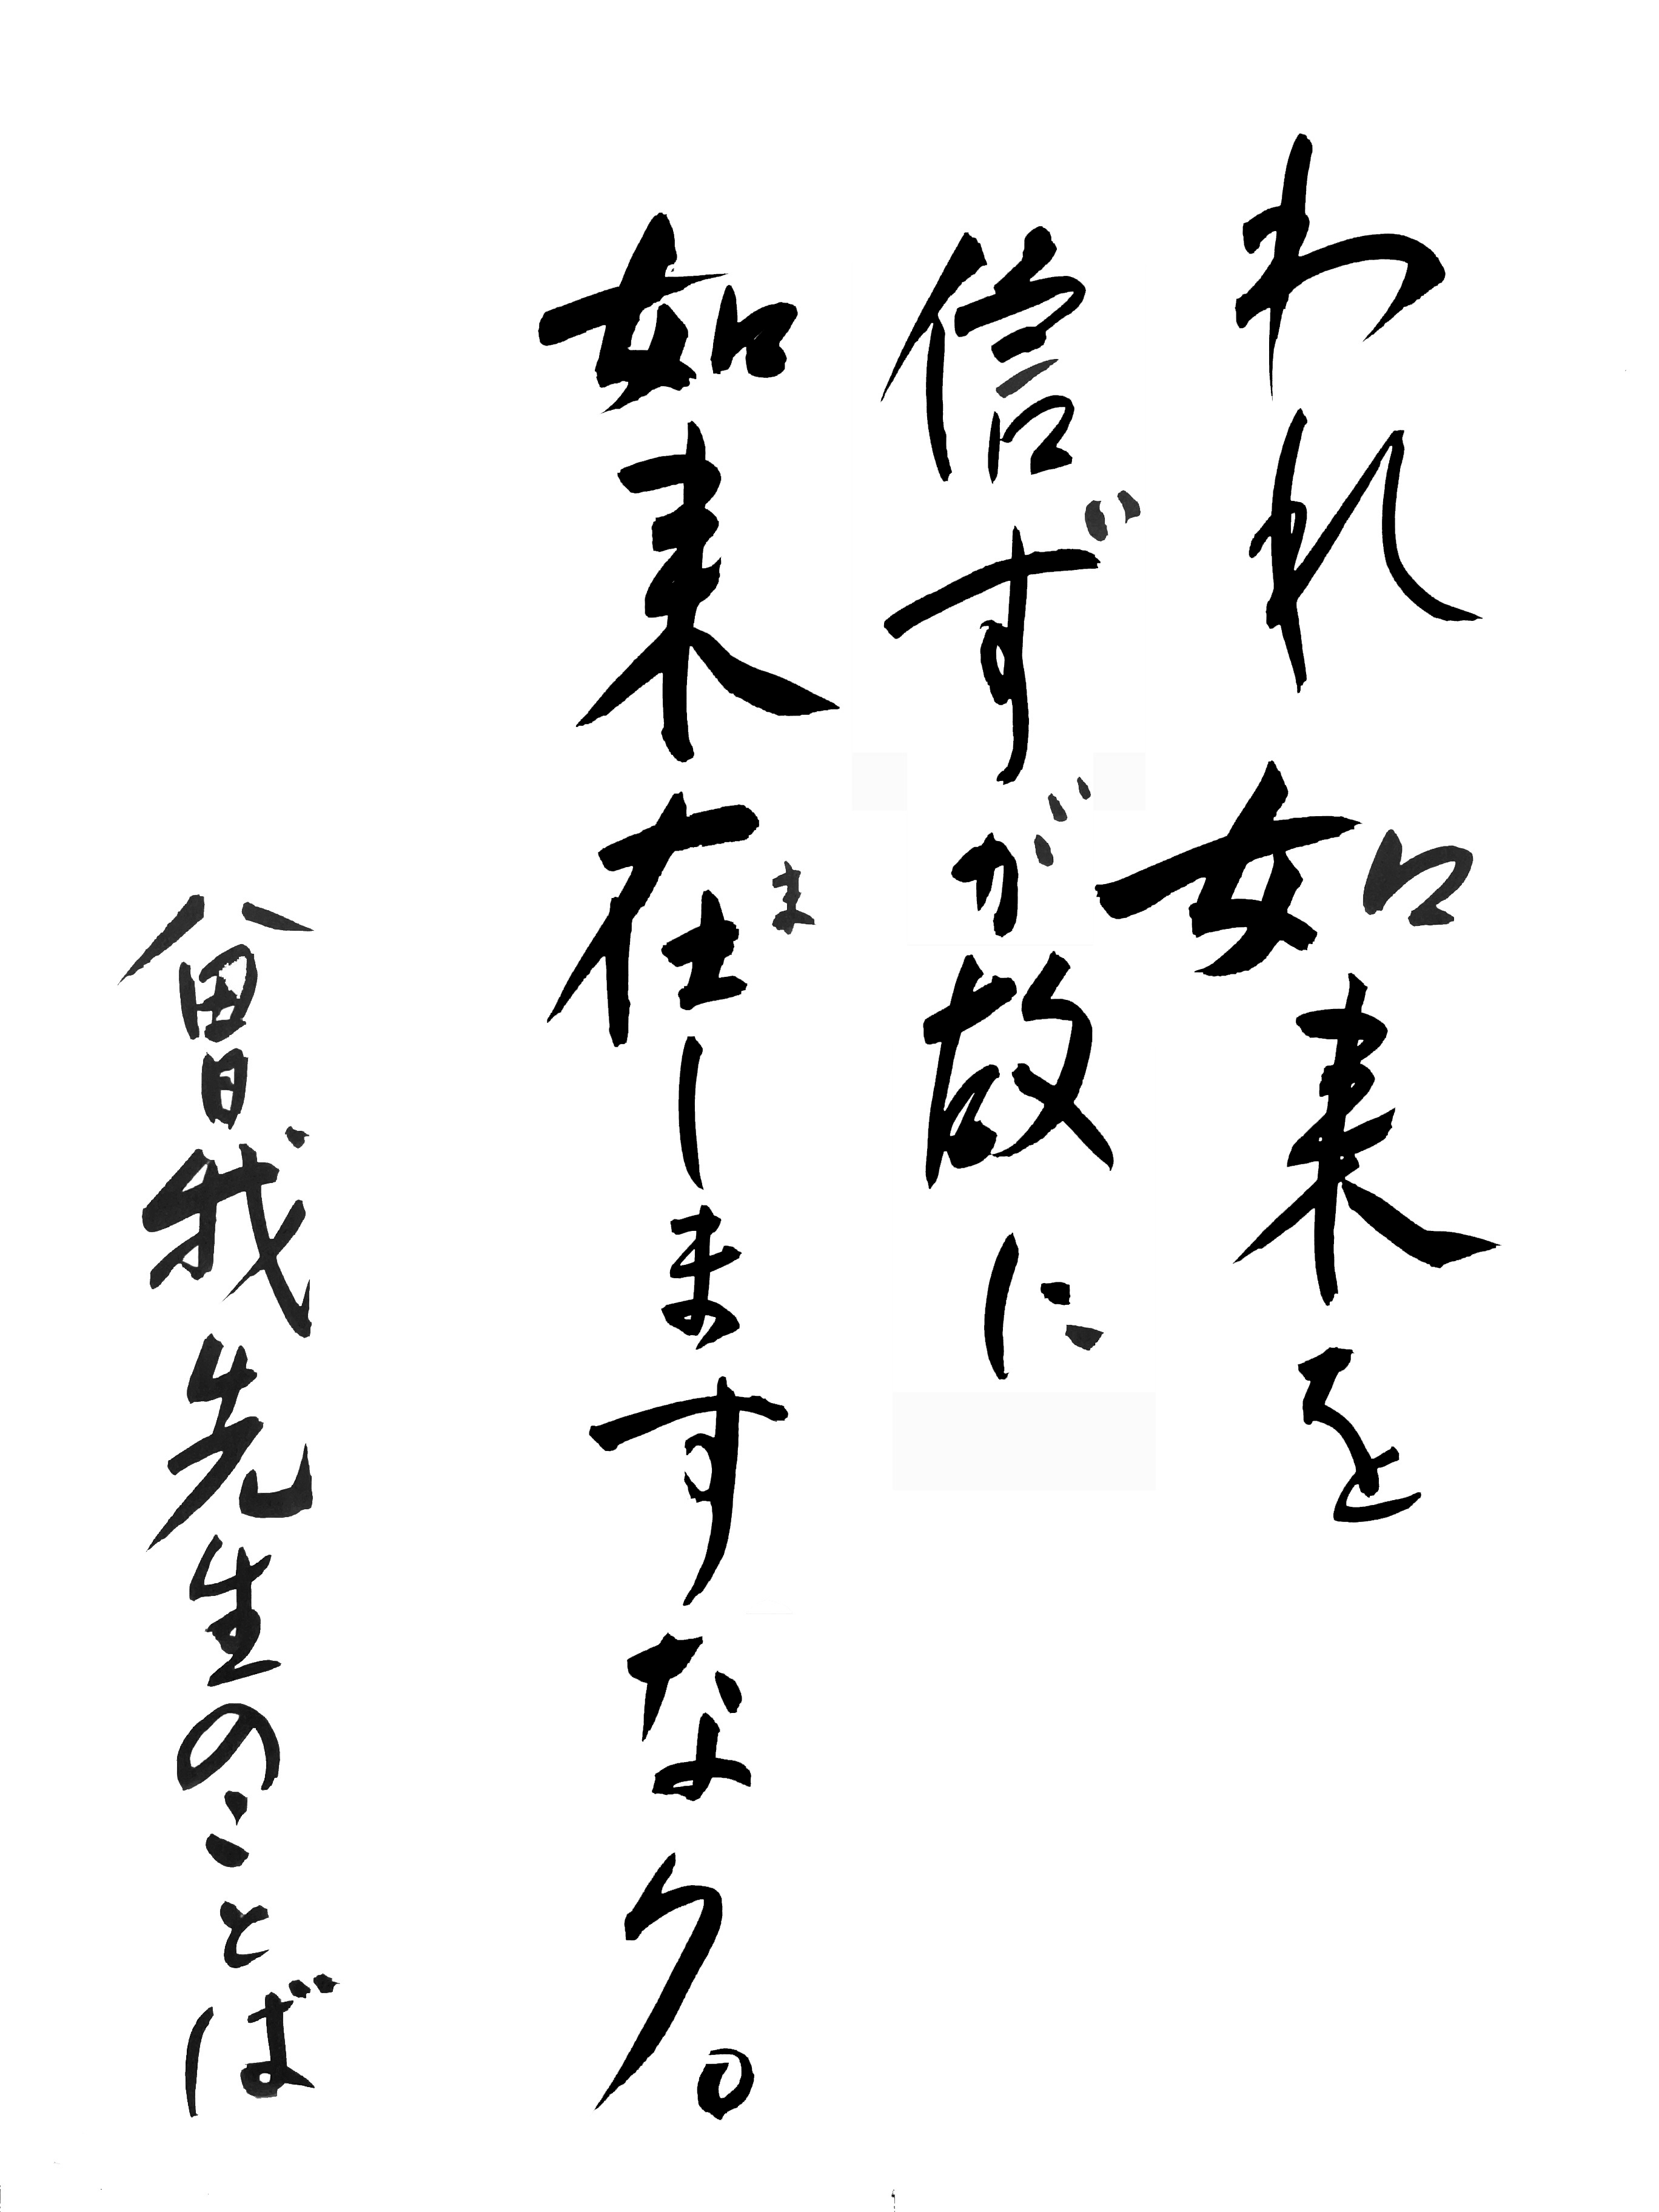 われ如来を
信ずが故に
如来在しますなり。
ま
曾我先生のことば